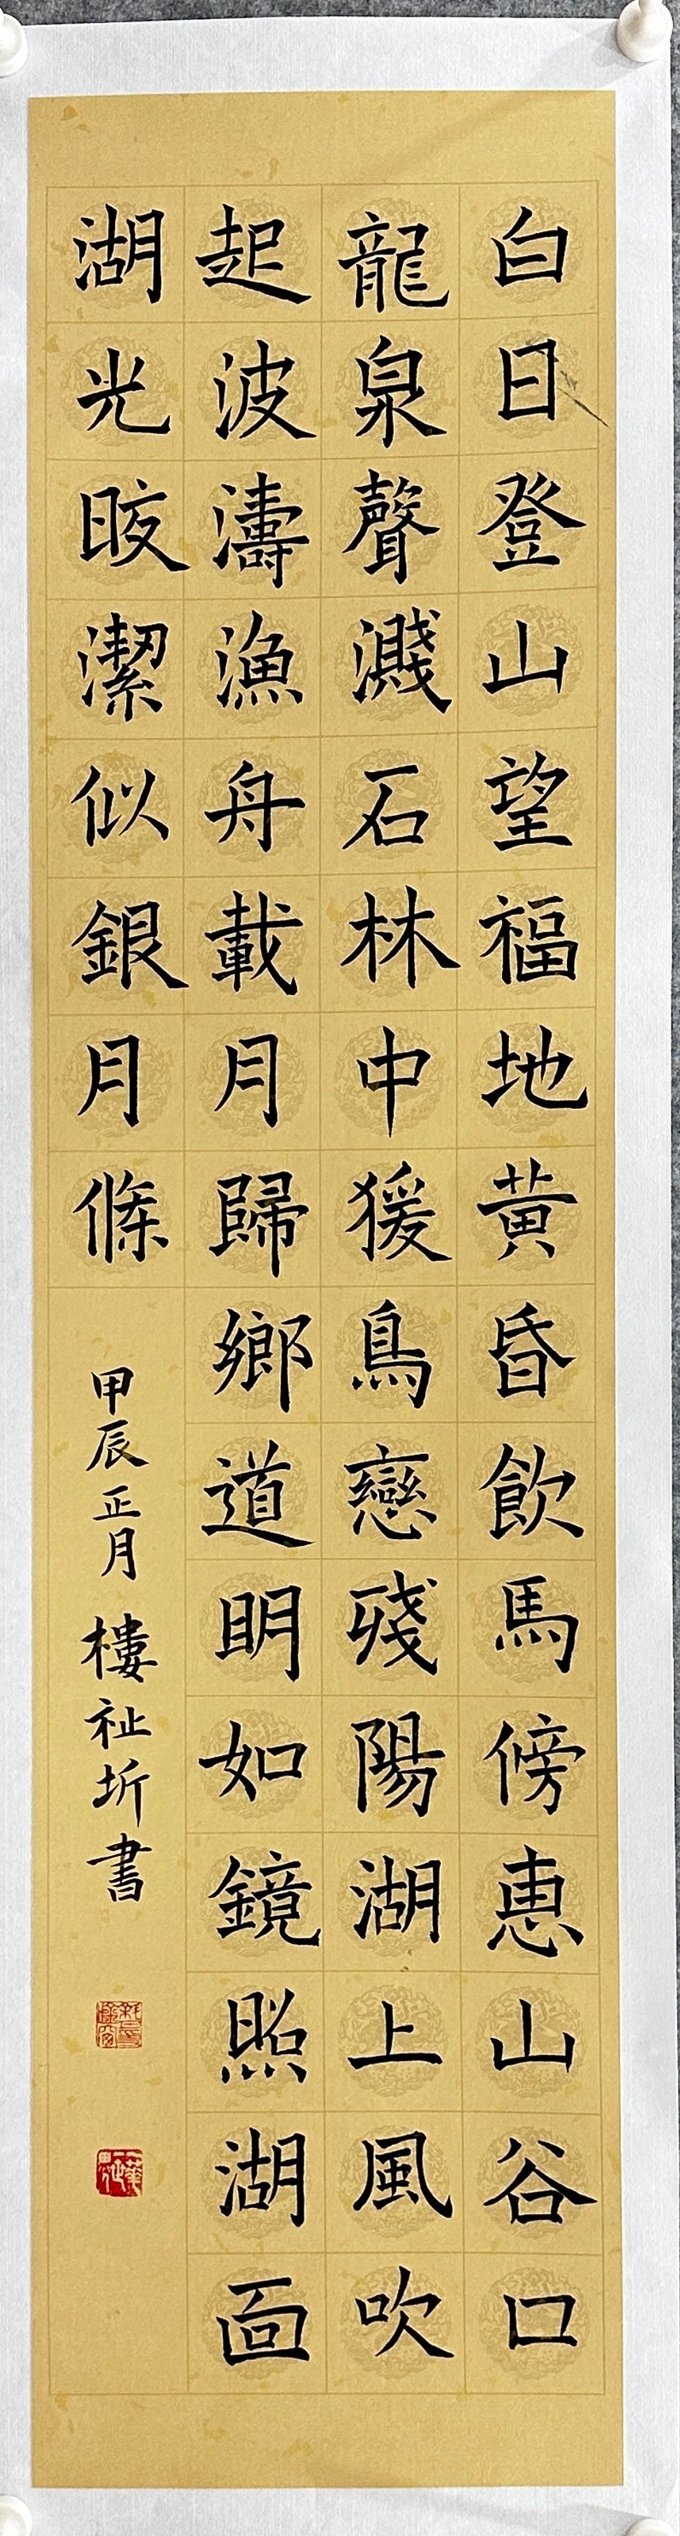 白日登山望福地黄昏飲馬傍恵山谷口
龍泉聲濺石林中猨鳥戀殘陽湖上風吹
起波濤漁舟載月歸鄉道明如鏡照湖面
湖光晈潔似銀月條
甲辰正月樓祉圻書